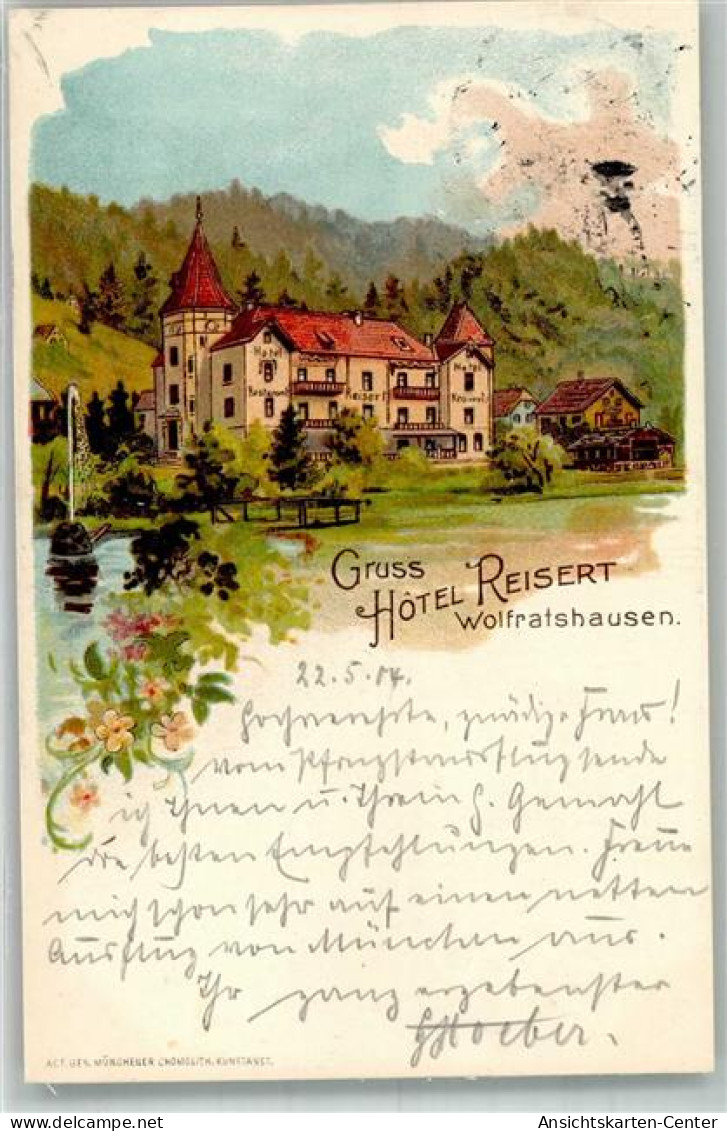 Hotel
Restaurant
Reisert
Hotel
Gruss
Hôtel Reisert
Wolfratshausen.
22.5.04.
Hochverehrte, gnädige Frau!
vom Pfingstausflug sende
ich Ihnen u. Ihrem H. Gemahl
die besten Empfehlungen. Freue
mich schon sehr auf einen netten
Ausflug von München aus.
Ihr ganz ergebenster
ACT. GES. MÜNCHENER CHROMOLITH. KUNSTANST.
Ansichtskarten-Center